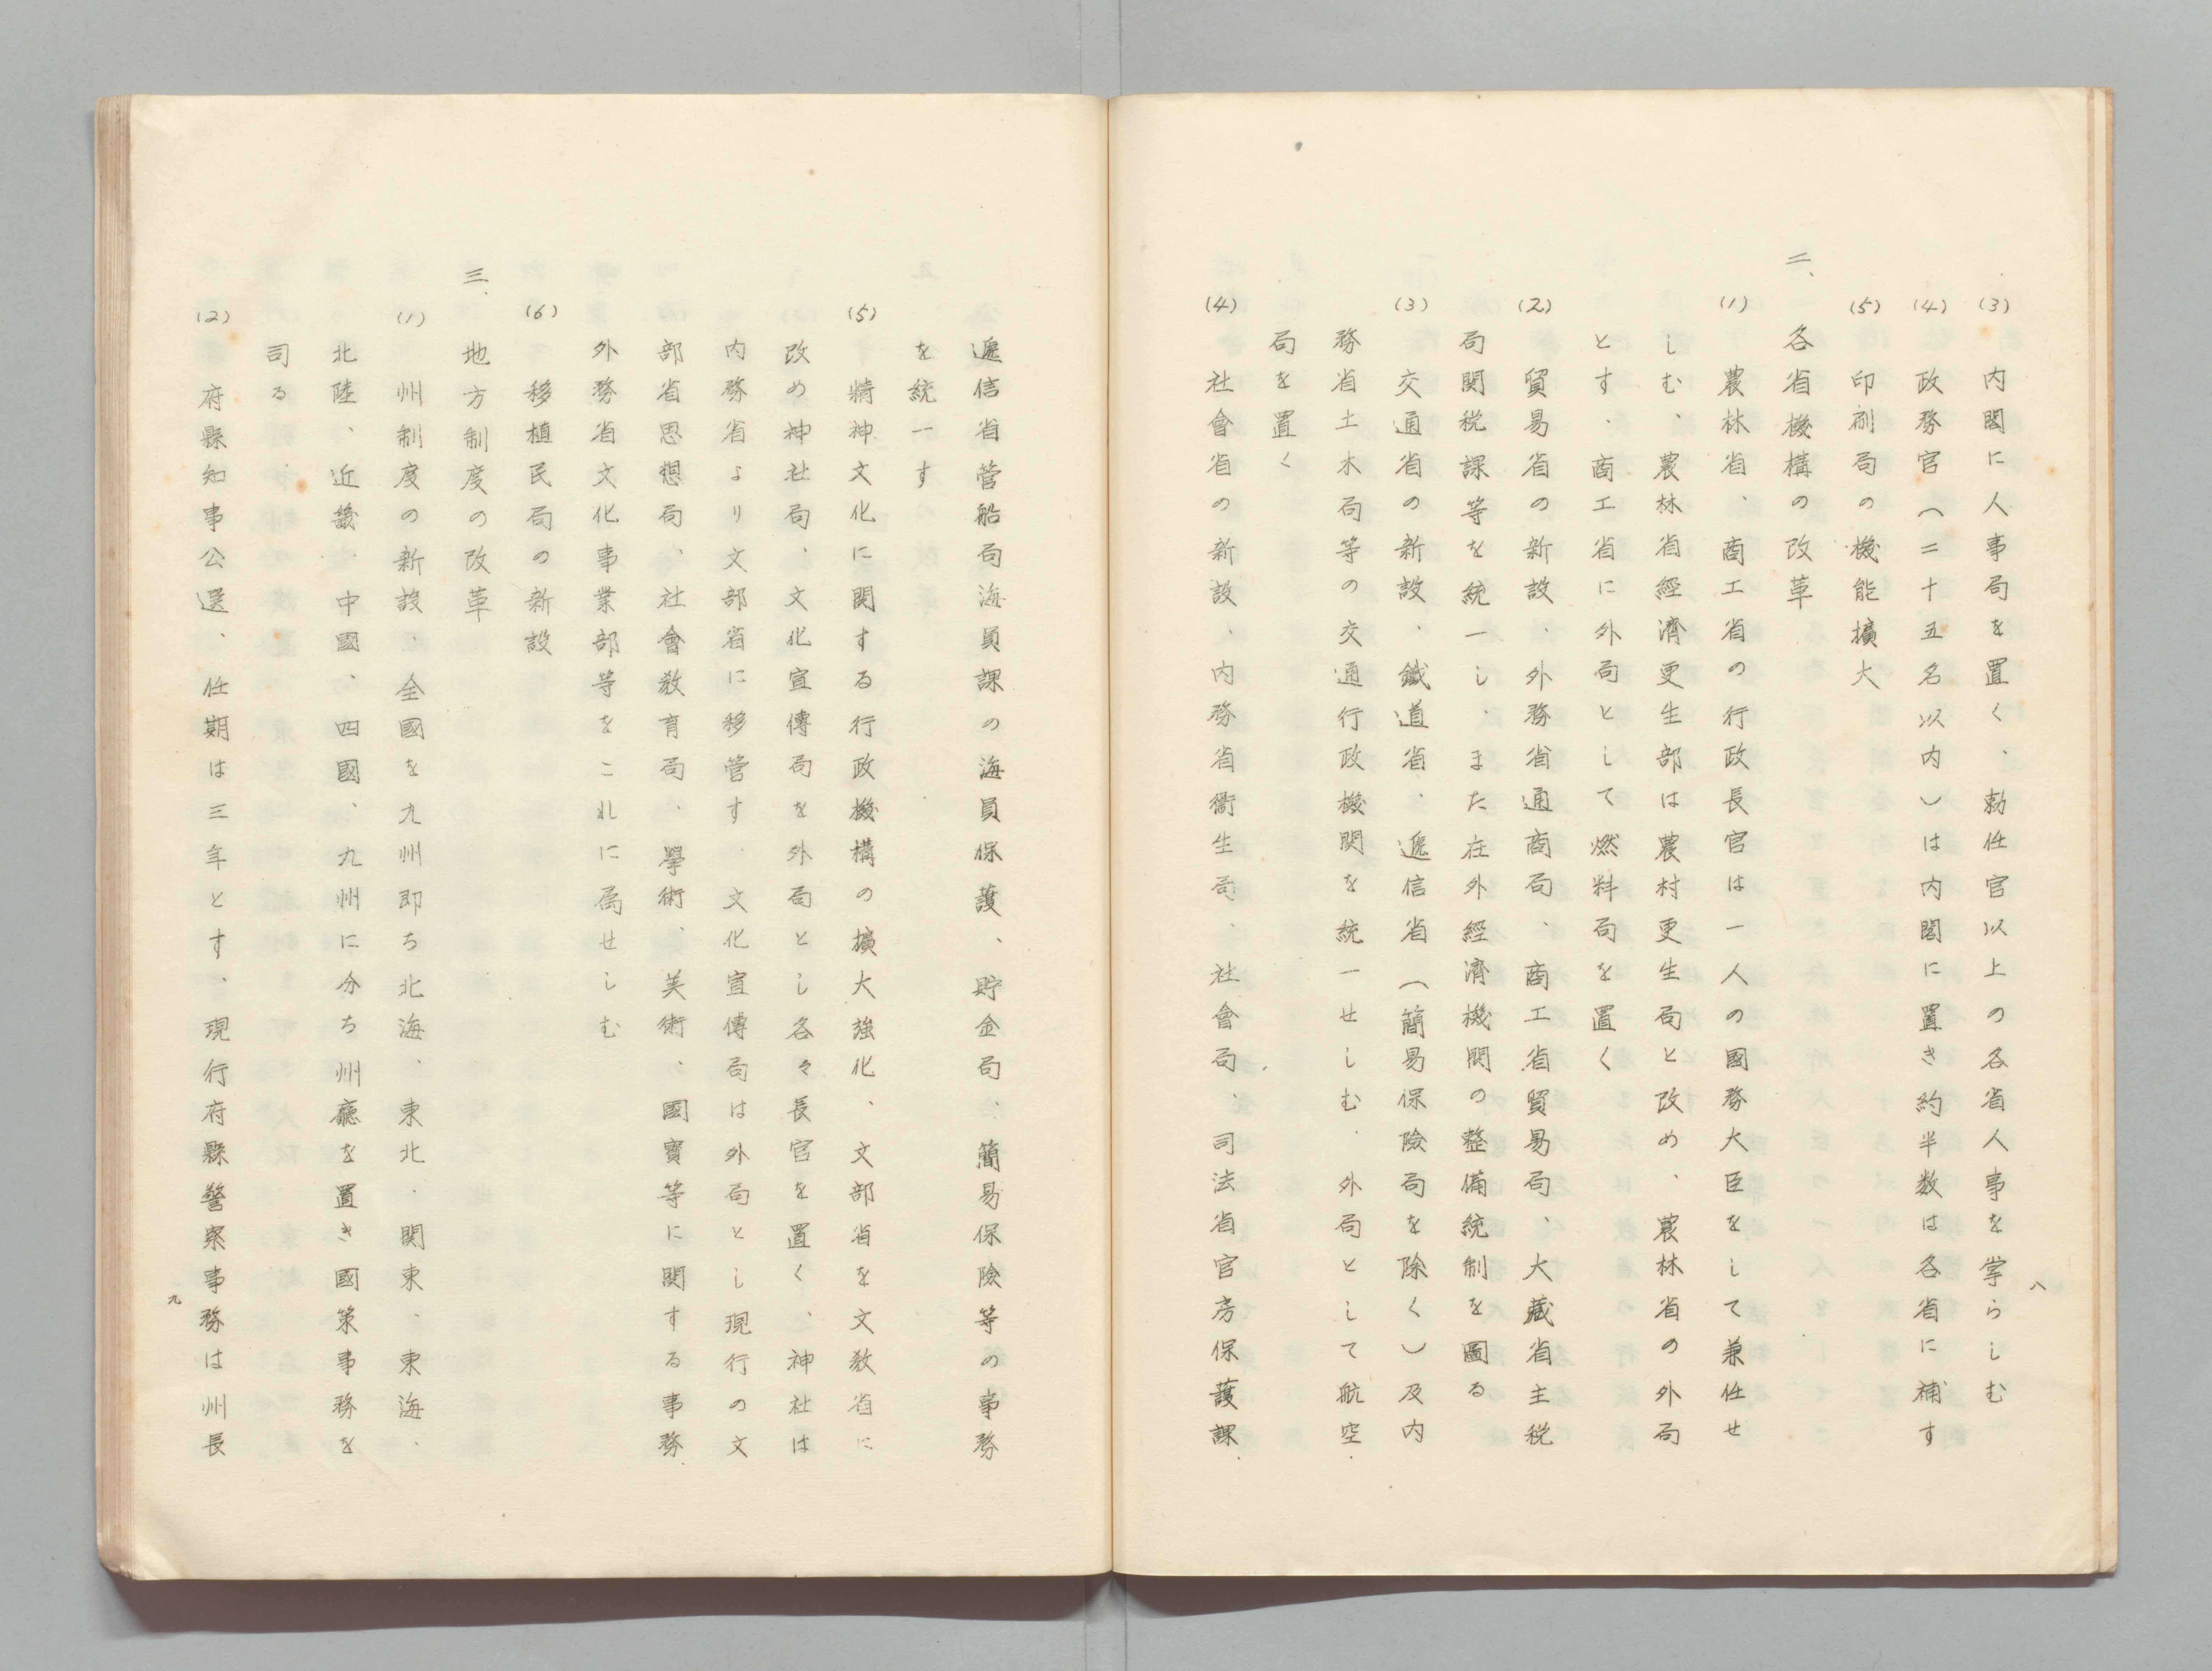 (3) 内閣に人事局を置く、勅任官以上の各省人事を掌らしむ
(4) 政務官(二十五名以内)は内閣に置き約半数は各省に補す
(5) 印刷局の機能擴大
二、各省機構の改革
(1) 農林省、商工省の行政長官は一人の國務大臣をして兼任せ
しむ、農林省經濟更生部は農村更生局と改め、農林省の外局
とす、商工省に外局として燃料局を置く
(2) 貿易省の新設、外務省通商局、商工省貿易局、大藏省主税
局関税課等を統一し、また在外經濟機関の整備統制を圖る
(3) 交通省の新設、鐵道省、遞信省(簡易保險局を除く)及内
務省土木局等の交通行政機関を統一せしむ、外局として航空
局を置く
(4) 社會省の新設、内務省衛生局、社會局、司法省官房保護課、
八
遞信省管船局海員課の海員保護、貯金局、簡易保險等の事務
を統一す
(5) 精神文化に関する行政機構の擴大強化、文部省を文教省に
改め神社局、文化宣傳局を外局とし各々長官を置く、神社は
内務省より文部省に移管す、文化宣傳局は外局とし現行の文
部省思想局、社會教育局、學術、美術、國寶等に関する事務、
外務省文化事業部等をこれに属せしむ
(6) 移植民局の新設
三、地方制度の改革
(1) 州制度の新設、全國を九州即ち北海、東北、関東、東海、
北陸、近畿、中國、四國、九州に分ち州廳を置き國策事務を
司る、
(2) 府縣知事公選、任期は三年とす、現行府縣警察事務は州長
九